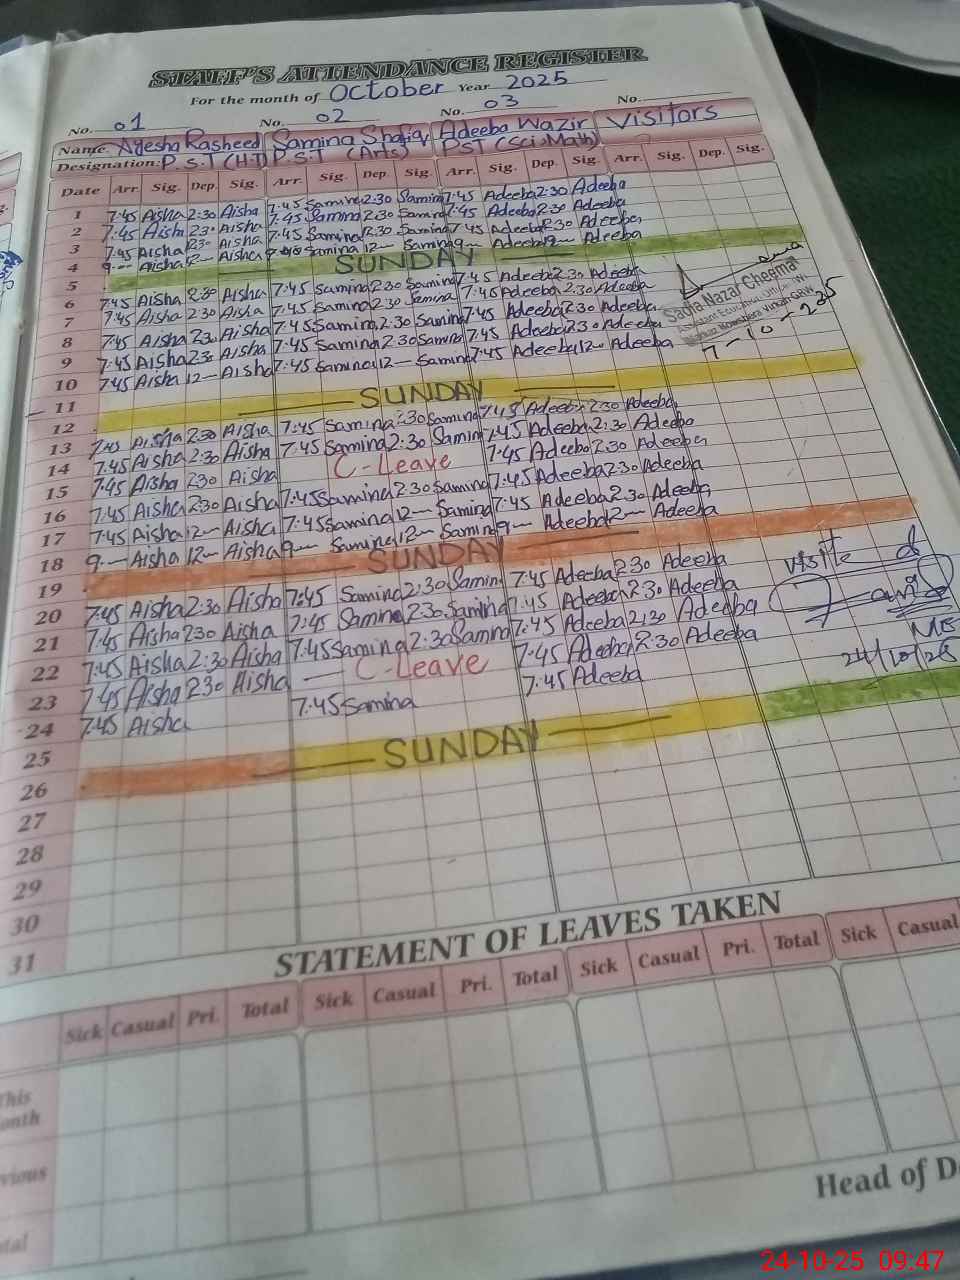 STAFF'S ATTENDANCE REGISTER
For the month of October Year 2025
No. 01 No. 02 No. 03 No.
Name. Ayesha Rasheed Samina Shafiq Adeeba Wazir Visitors
Designation: P.S.T (HT) P.S.T (Arts) PST (Sci, Math)
Date Arr. Sig. Dep. Sig. Arr. Sig. Dep. Sig. Arr. Sig. Dep. Sig. Arr. Sig. Dep. Sig.
1 7:45 Aisha 2:30 Aisha 7:45 Samina 2:30 Samina 7:45 Adeeba 2:30 Adeeba
2 7:45 Aisha 2:30 Aisha 7:45 Samina 2:30 Samina 7:45 Adeeba 2:30 Adeeba
3 7:45 Aisha 2:30 Aisha 7:45 Samina 2:30 Samina 7:45 Adeeba 2:30 Adeeba
4 9-- Aisha 12-- Aisha Samina 12-- Samina 9-- Adeeba 12-- Adeeba
5 SUNDAY
6 7:45 Aisha 2:30 Aisha 7:45 Samina 2:30 Samina 7:45 Adeeba 2:30 Adeeba
7 7:45 Aisha 2:30 Aisha 7:45 Samina 2:30 Samina 7:45 Adeeba 2:30 Adeeba
Sadia Nazar Cheema
Assistant Education Officer
7-10-25
8 7:45 Aisha 2:30 Aisha 7:45 Samina 2:30 Samina 7:45 Adeeba 2:30 Adeeba
9 7:45 Aisha 2:30 Aisha 7:45 Samina 2:30 Samina 7:45 Adeeba 2:30 Adeeba
10 7:45 Aisha 12-- Aisha 7:45 Samina 12-- Samina 7:45 Adeeba 12-- Adeeba
11
12 SUNDAY
13 7:45 Aisha 2:30 Aisha 7:45 Samina 2:30 Samina 7:45 Adeeba 2:30 Adeeba
14 7:45 Aisha 2:30 Aisha 7:45 Samina 2:30 Samina 7:45 Adeeba 2:30 Adeeba
15 7:45 Aisha 2:30 Aisha C-Leave 7:45 Adeeba 2:30 Adeeba
16 7:45 Aisha 2:30 Aisha 7:45 Samina 2:30 Samina 7:45 Adeeba 2:30 Adeeba
17 7:45 Aisha 12-- Aisha 7:45 Samina 12-- Samina 7:45 Adeeba 2:30 Adeeba
18 9-- Aisha 12-- Aisha 9-- Samina 12-- Samina 9-- Adeeba 12-- Adeeba
19 SUNDAY
20 7:45 Aisha 2:30 Aisha 7:45 Samina 2:30 Samina 7:45 Adeeba 2:30 Adeeba
21 7:45 Aisha 2:30 Aisha 7:45 Samina 2:30 Samina 7:45 Adeeba 2:30 Adeeba
22 7:45 Aisha 2:30 Aisha 7:45 Samina 2:30 Samina 7:45 Adeeba 2:30 Adeeba
23 7:45 Aisha 2:30 Aisha C-Leave 7:45 Adeeba 2:30 Adeeba
24 7:45 Aisha 7:45 Samina 7:45 Adeeba
visited
24/10/25
25
26 SUNDAY
27
28
29
30
31
STATEMENT OF LEAVES TAKEN
Sick Casual Pri. Total Sick Casual Pri. Total Sick Casual Pri. Total Sick Casual
Head of D
24-10-25 09:47